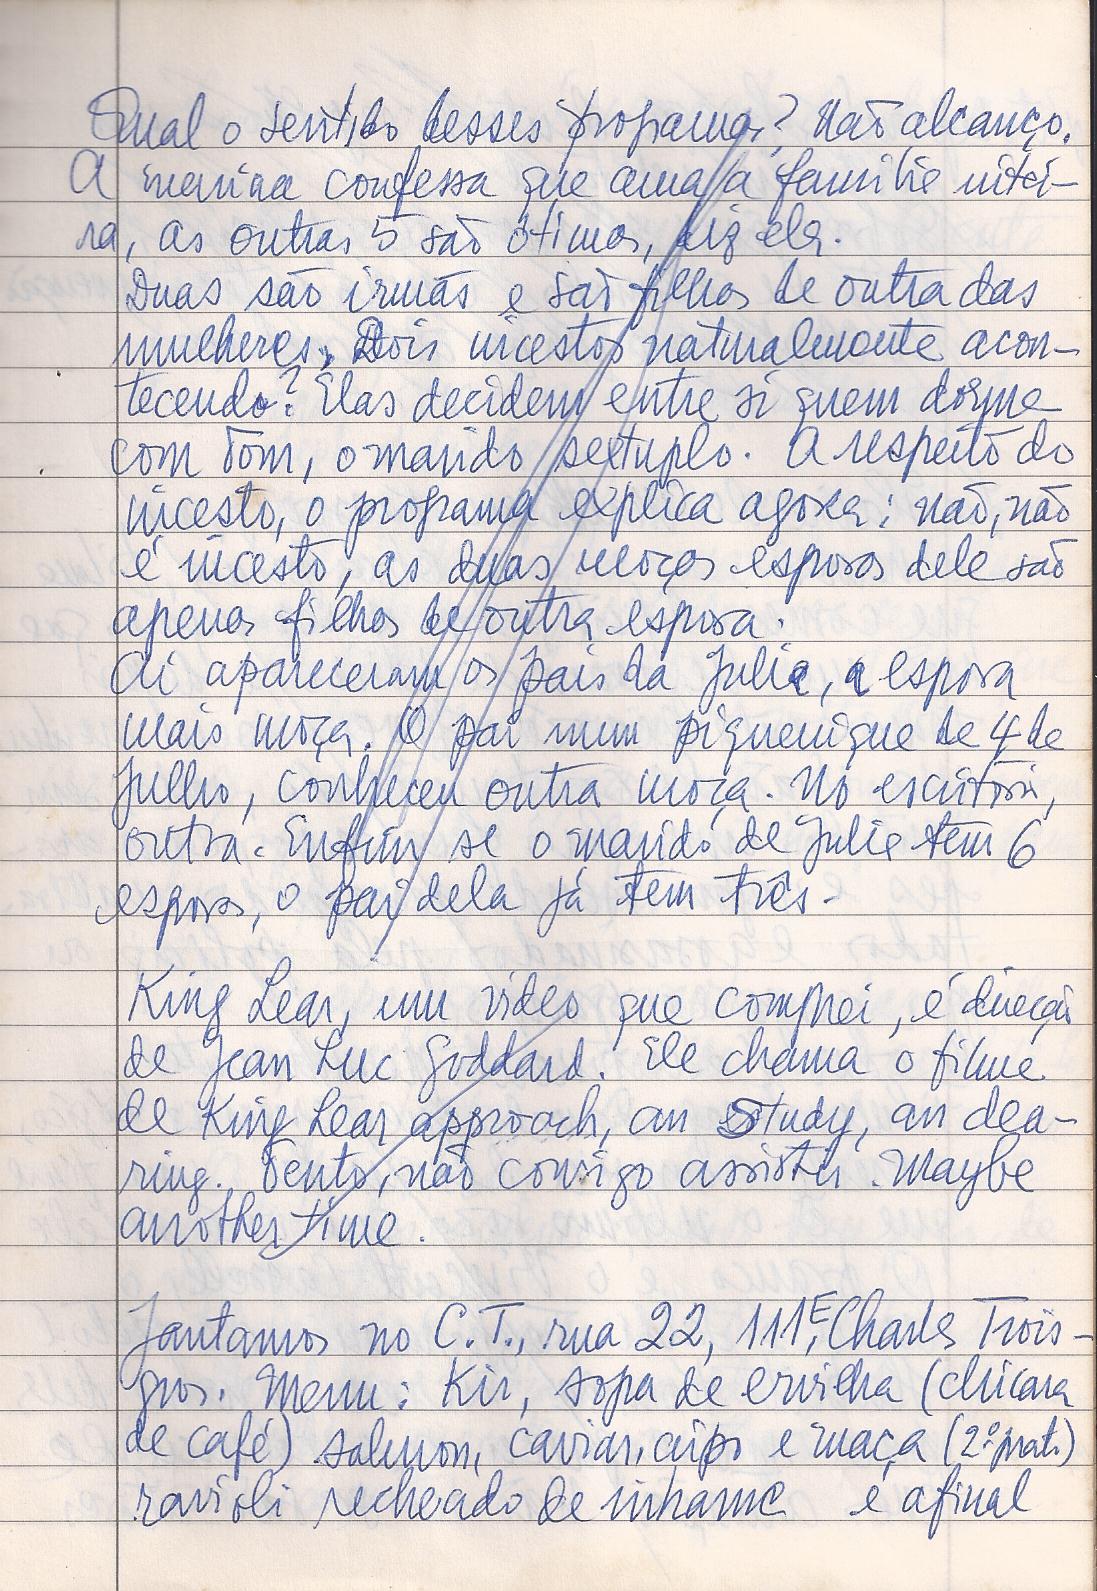 Qual o sentido desses programas? Não alcanço.
A menina confessa que ama a família intei-
ra, as outras 5 são ótimas, diz ela.
Duas são irmãs e são filhas de outra das
mulheres. Dois incestos naturalmente acon-
tecendo? Elas decidem entre si quem dorme
com Tom, o marido sextuplo. A respeito do
incesto, o programa explica agora: não, não
é incesto, as duas moças esposas dele são
apenas filhas de outra esposa.
Aí apareceram os pais da Julie, a esposa
mais moça. O pai num piquenique de 4 de
Julho, conheceu outra moça. No escritório,
outra. Enfim se o marido de Julie tem 6
esposas, o pai dela já tem três.
King Lear, um video que comprei, é direção
de Jean Luc Goddard. Ele chama o filme
de King Lear approach, an study, an clea-
ring. Tento, não consigo assistir. Maybe
another time.
Jantamos no C.T., rua 22, 111E, Charles Trois-
gros. Menu: Kir, sopa de ervilha (chicara
de café) salmon, caviar, aipo e maça (2º prato)
ravioli recheado de inhame e afinal